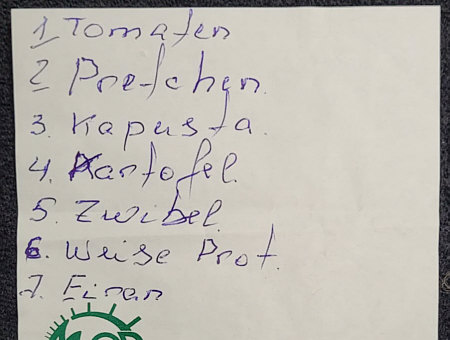 1 Tomaten
2 Pretchen.
3. Kapusta.
4. Kartofel.
5. Zwibel.
6. Weise Prot.
7. Eiran